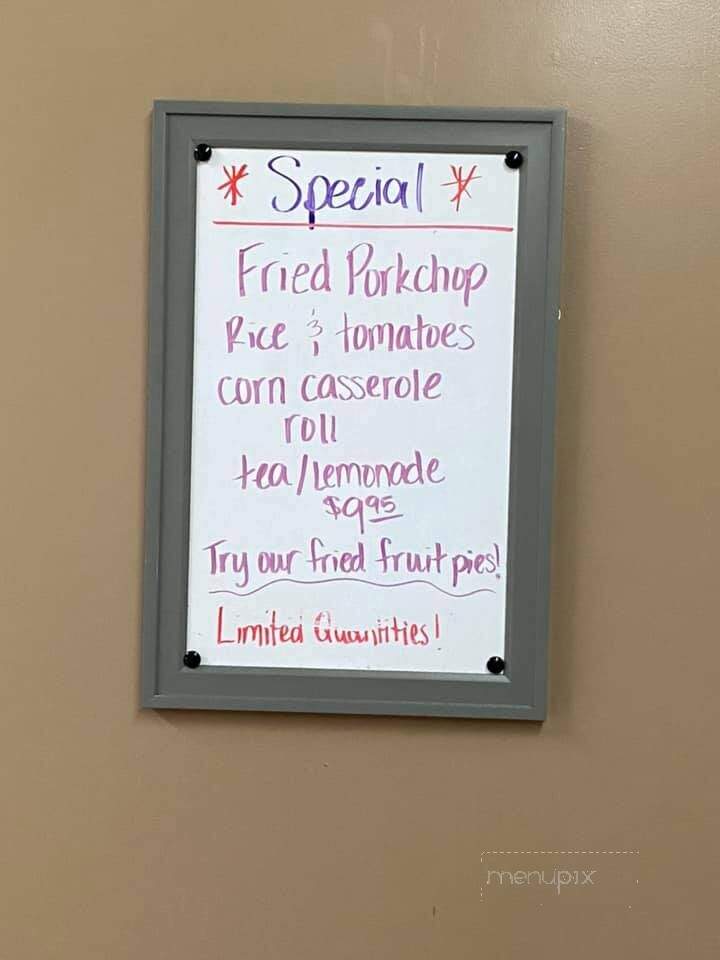 * Special *
Fried Porkchop
Rice & tomatoes
corn casserole
roll
tea/Lemonade
$9.95
Try our fried fruit pies!
Limited Quantities!
menupix